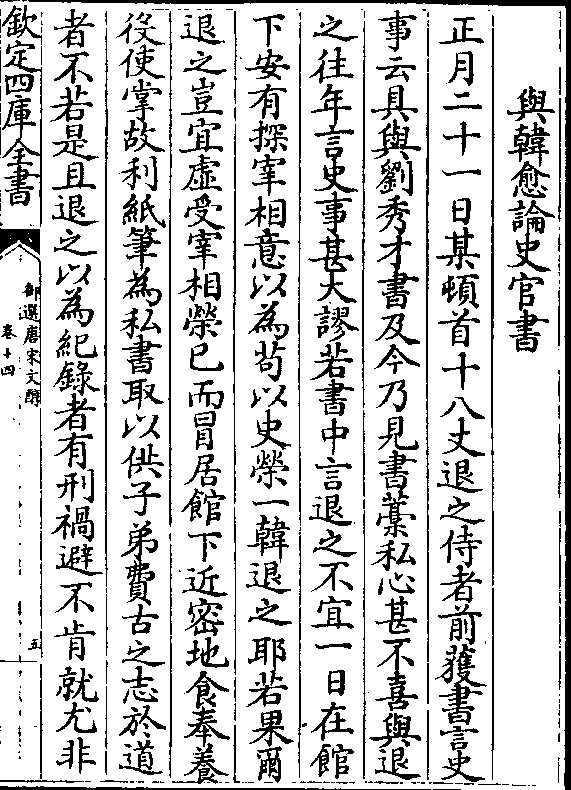 與韓愈論史官書
正月二十一日某頓首十八丈退之侍者前獲書言史
事云具與劉秀才書及今乃見書藁私心甚不喜與退
之往年言史事甚大謬若書中言退之不宜一日在館
下安有探宰相意以為苟以史榮一韓退之耶若果爾
退之豈宜虛受宰相榮已而冐居館下近密地食奉養
役使掌故利紙筆為私書取以供子弟費古之志於道
者不若是且退之以為紀錄者有刑禍避不肯就尤非
欽定四庫全書
御選唐宋文醇
卷十四
五